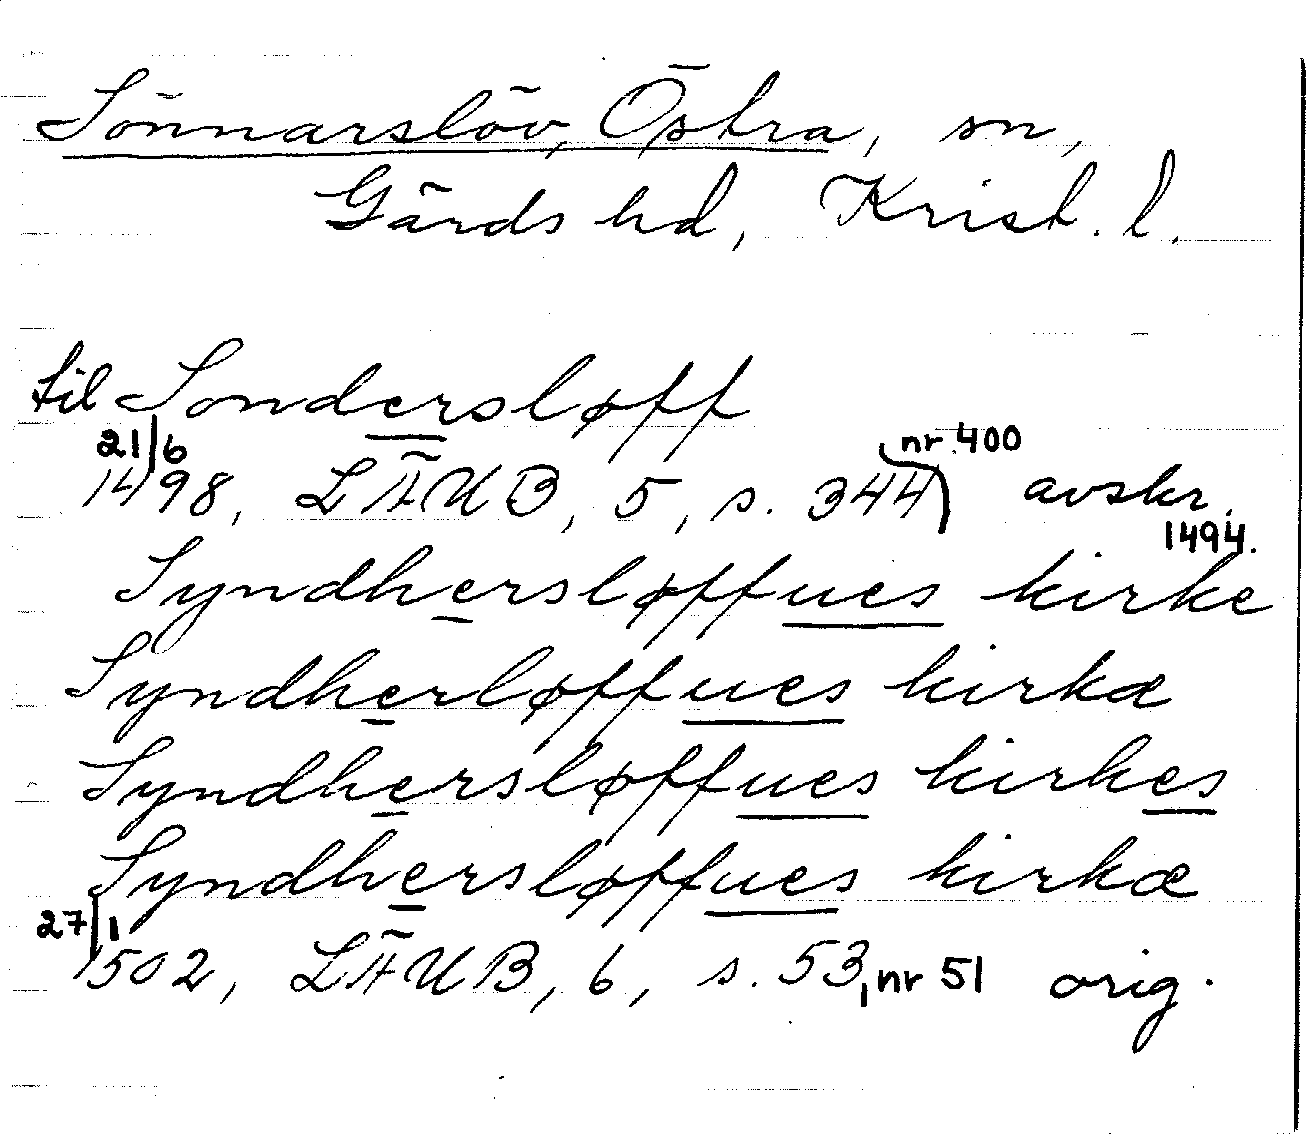 Sönnarslöv, Östra, sn,
Gärds hd, Krist. l.
til Sondersløff
21/6 1498, LÄUB, 5, s. 344, nr. 400 avskr. 1494.
Syndhersløffues kirke
Syndherløffues kirkæ
Syndhersløffues kirkes
Syndhersløffues kirkæ
27/1 1502, LÄUB, 6, s. 53, nr 51 orig.